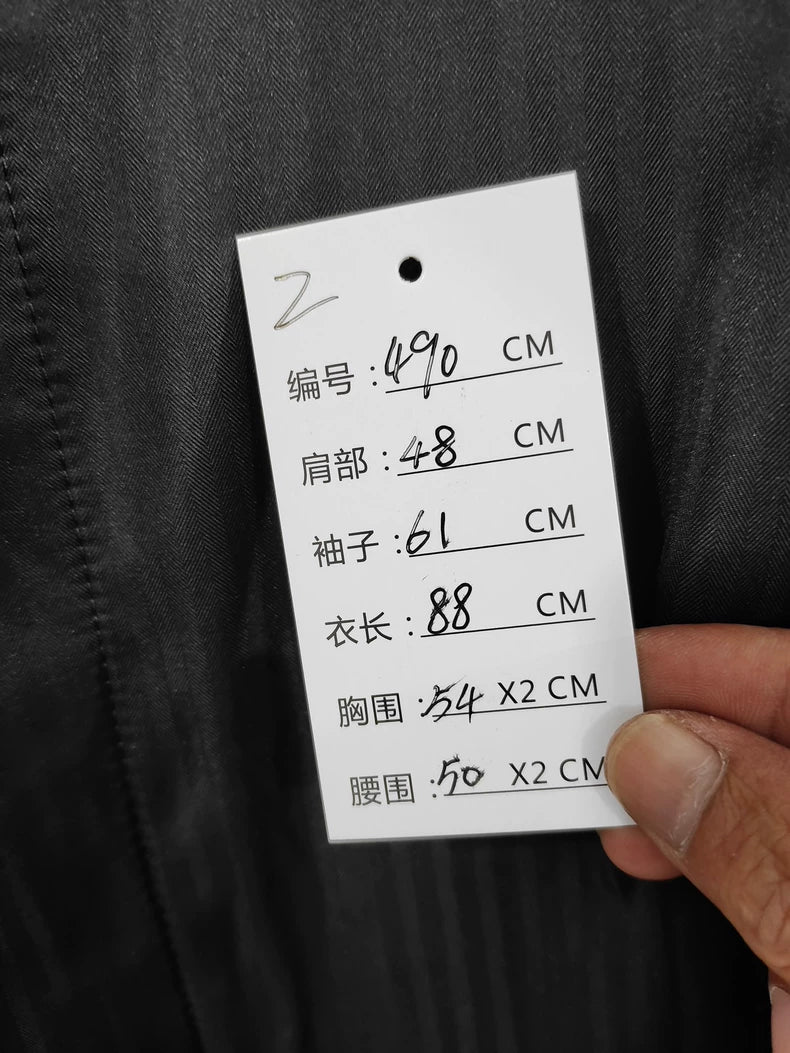 Z
编号：490 CM
肩部：48 CM
袖子：61 CM
衣长：88 CM
胸围：54 X2 CM
腰围：50 X2 CM